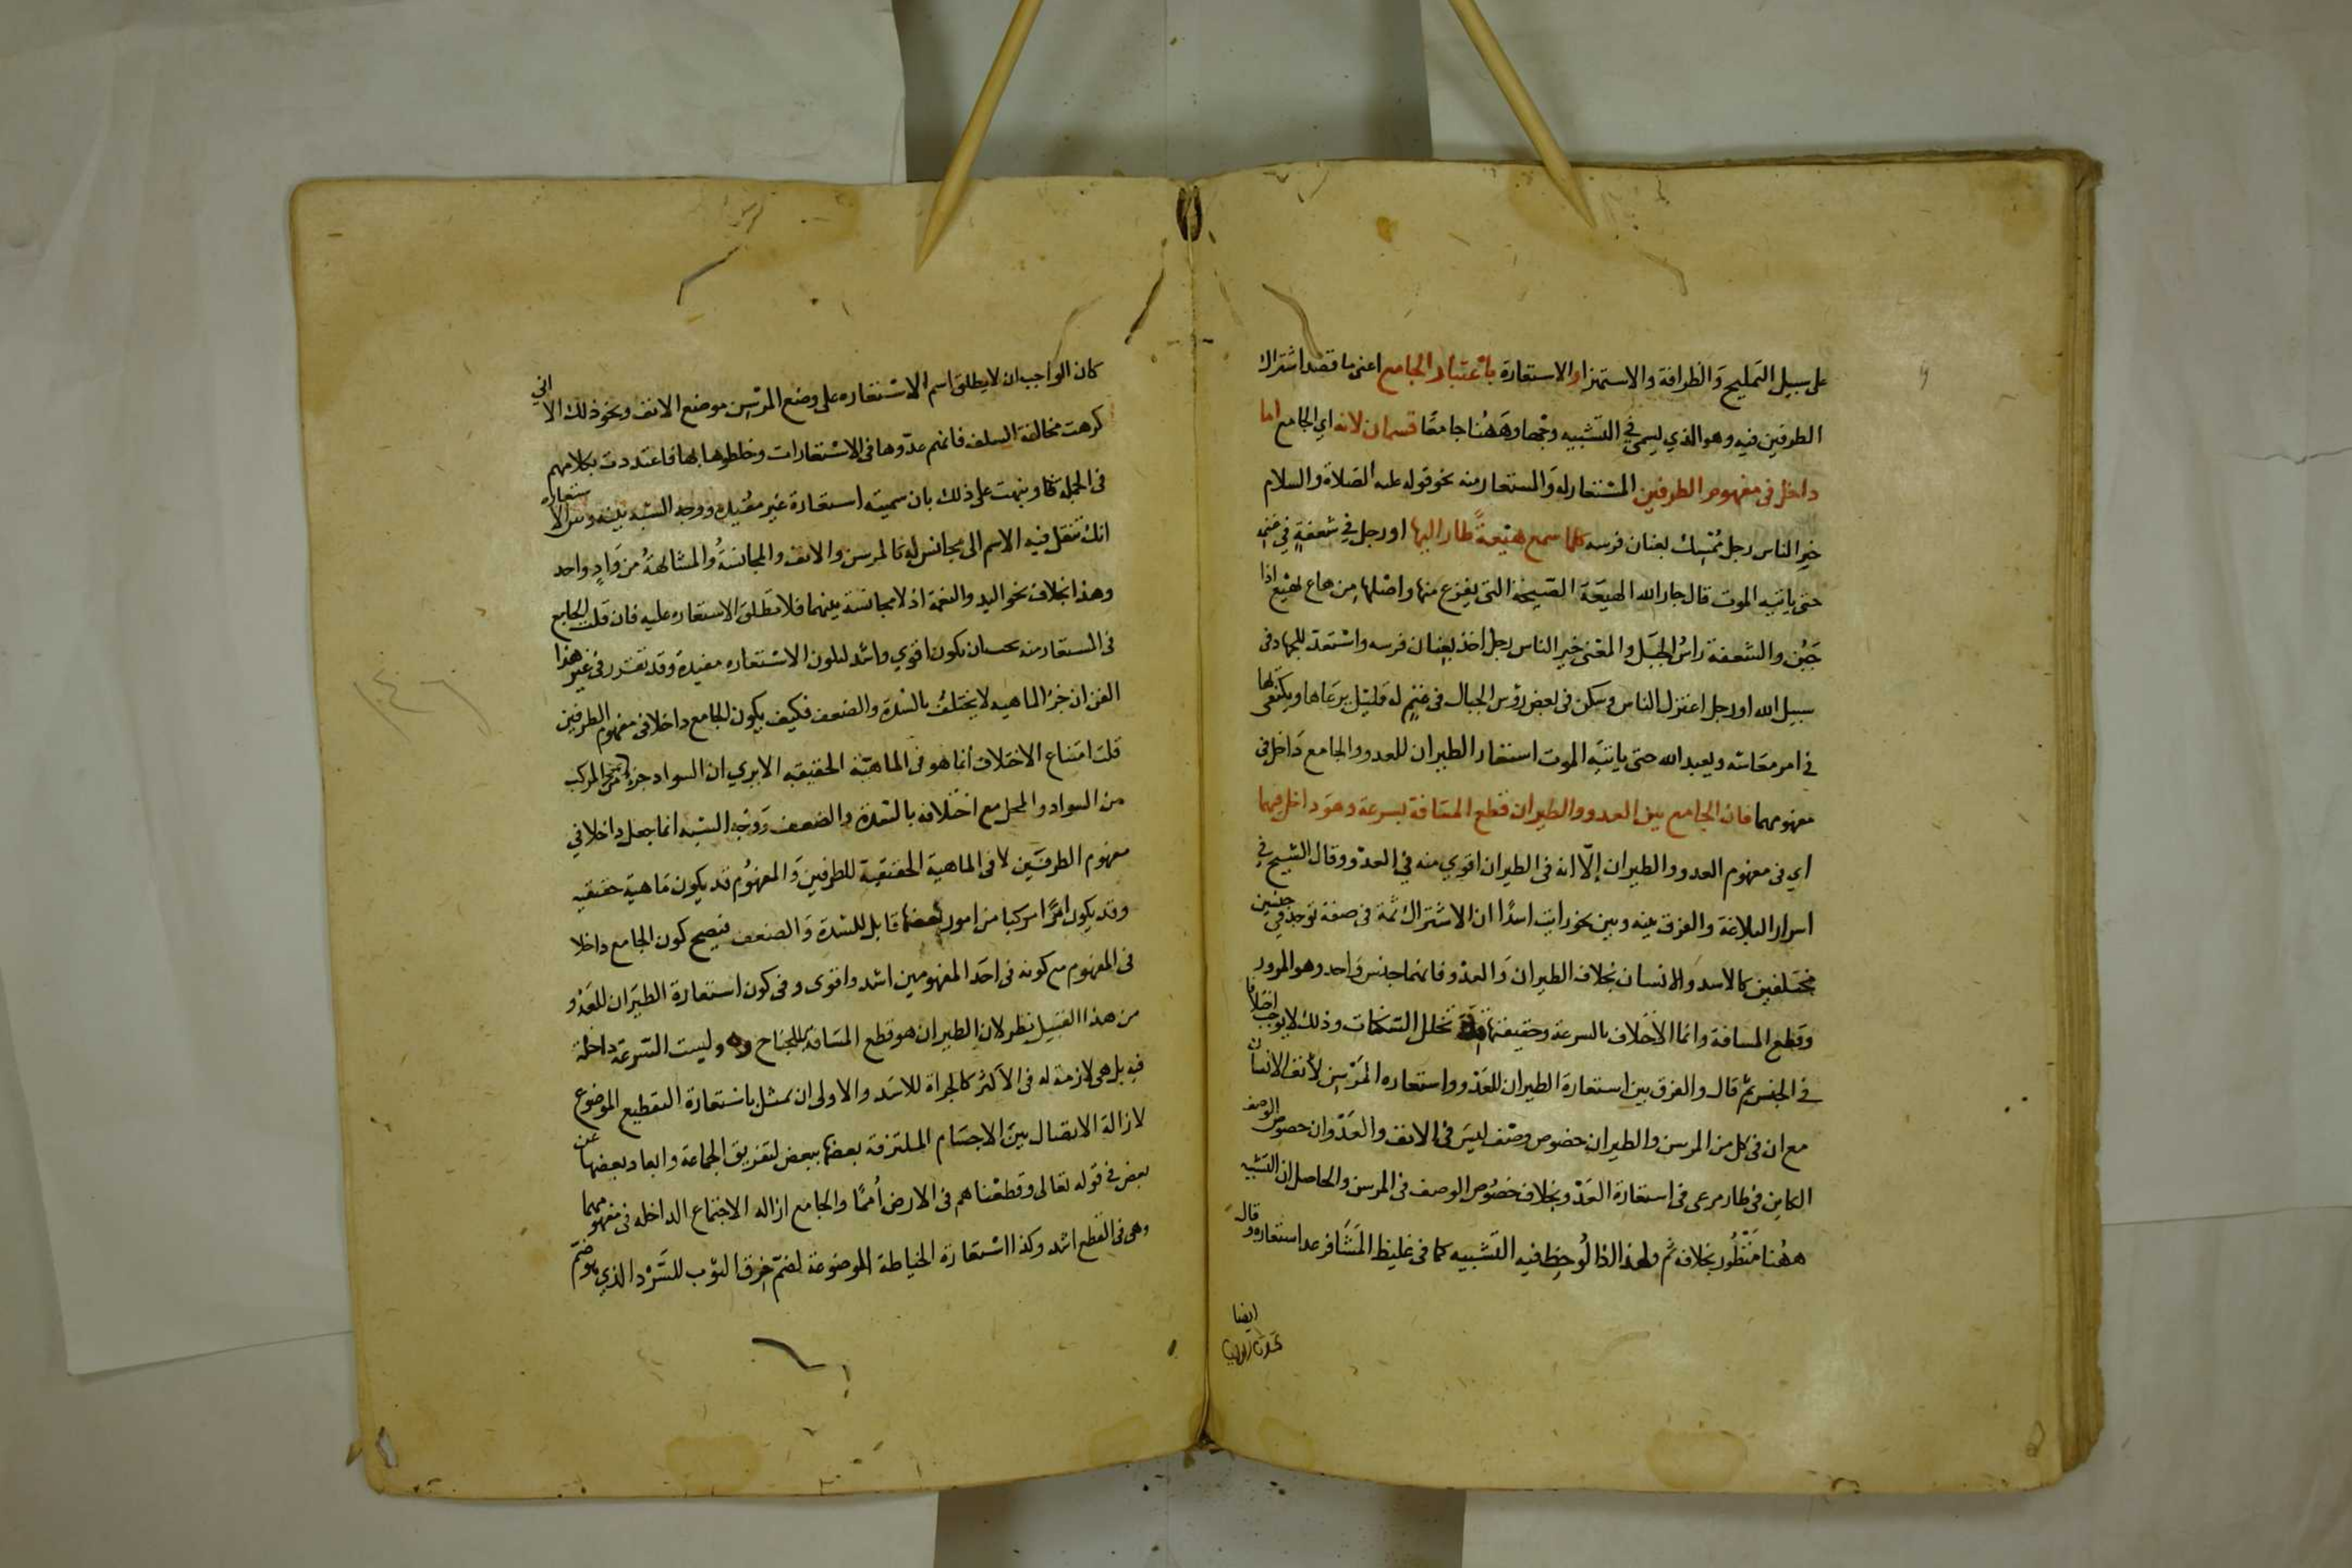 على سبيل التمليح والظرافة والاستهزا والاستعارة باعتبار الجامع اعنى ما قصد اشتراك
الطرفين فيه وهو الذي يسمى في التشبيه وجها وههنا جامعا قسمان لانه اي الجامع اما
داخل فى مفهوم الطرفين المستعار له والمستعار منه نحو قوله عليه الصلاة والسلام
خير الناس رجل ممسك بعنان فرسه كلما سمع هيعة طار اليها او رجل في شعفة في غنيمة
حتى ياتيه الموت قال جار الله الهيعة الصيحة التى يفزع منها واصلها من هاع يهيع اذا
جبن والشعفة راس الجبل والمعنى خير الناس رجل اخذ بعنان فرسه واستعد للجهاد فى
سبيل الله او رجل اعتزل الناس وسكن فى بعض رؤس الجبال فى غنم له قليل يرعاها ويكتفى بها
في امر معاشه ويعبد الله حتى ياتيه الموت استعار الطيران للعدو والجامع داخل فى
مفهومهما فان الجامع بين العدو والطيران قطع المسافة بسرعة وهو داخل فيهما
اي فى مفهوم العدو والطيران إلّا انه فى الطيران اقوي منه في العدو وقال الشيخ في
اسرار البلاغة والفرق بينه وبين نحو رايت اسدًا ان الاشتراك ثمة فى صفة توجد في جنسين
مختلفين كالاسد والانسان بخلاف الطيران والعدو فانهما جنس واحد وهو المرور
وقطع المسافة وانما الاختلاف بالسرعة وحقيقتها قلة تخلل السكنات وذلك لا يوجب اختلافا
في الجنس ثم قال والفرق بين استعارة الطيران للعدو واستعاره المرسن لأنف الانسان
مع ان فى كل من المرسن والطيران خصوص وصف ليس فى الانف والعدو ان خصوص الوصف
الكاين فى طار مرعى فى استعارة العدو بخلاف خصوص الوصف فى المرسن والحاصل ان التشبيه
ههنا منظور بخلاف ثم ولهذا اذا لوحظ فيه التشبيه كما فى غليظ المشافر عد استعاره وقال
ايضا
كان الواجب ان لا يطلق اسم الاستعاره على وضع المرسن موضع الانف ونحو ذلك الا انى
كرهت مخالفة السلف فانهم عدّوها فى الاستعارات وخلطوها بها فاعتددت بكلامهم
فى الجمله ونبهت على ذلك بان سميته استعارة غير مفيده ووجه الشبه بينه وبين الاستعاره
انك تنقل فيه الاسم الى مجانس له كالمرسن والانف والمجانسة والمشابهة من وادٍ واحد
وهذا بخلاف نحو اليد والنعمة اذ لا مجانسة بينهما فلا تطلق الاستعاره عليه فان قلت الجامع
فى المستعار منه يجب ان يكون اقوي واشد لتكون الاستعاره مفيدة وقد تقرر فى غير هذا
الفن ان جزء الماهيه لا يختلف بالشدة والضعف فكيف يكون الجامع داخلا فى مفهوم الطرفين
قلت امتناع الاختلاف انما هو فى الماهية الحقيقيه الا يري ان السواد جزء من المركب
من السواد والمحل مع اختلافه بالشدة والضعف ووجه الشبه انما جعل داخلا في
مفهوم الطرفين لا فى الماهية الحقيقية للطرفين والمفهوم قد يكون ماهية حقيقيه
وقد يكون امرًا مركبا من امور بعضها قابل للشدة والضعف فيصح كون الجامع داخلا
فى المفهوم مع كونه فى احد المفهومين اشد واقوى وفى كون استعارة الطيران للعدو
من هذا القبيل نظر لان الطيران هو قطع المسافة بالجناح وليست السرعة داخلة
فيه بل هى لازمة له فى الأكثر كالجراة للاسد والاولى ان يمثل باستعارة التقطيع الموضوع
لازالة الاتصال بين الاجسام الملتزقة بعضها ببعض لتفريق الجماعة وابعاد بعضها عن
بعض في قوله تعالى وقطعناهم فى الارض أممًا والجامع ازاله الاجتماع الداخله فى مفهومهما
وهى فى القطع اشد وكذا استعارة الخياطة الموضوعة لضم خرق الثوب للسرد الذي هو ضم